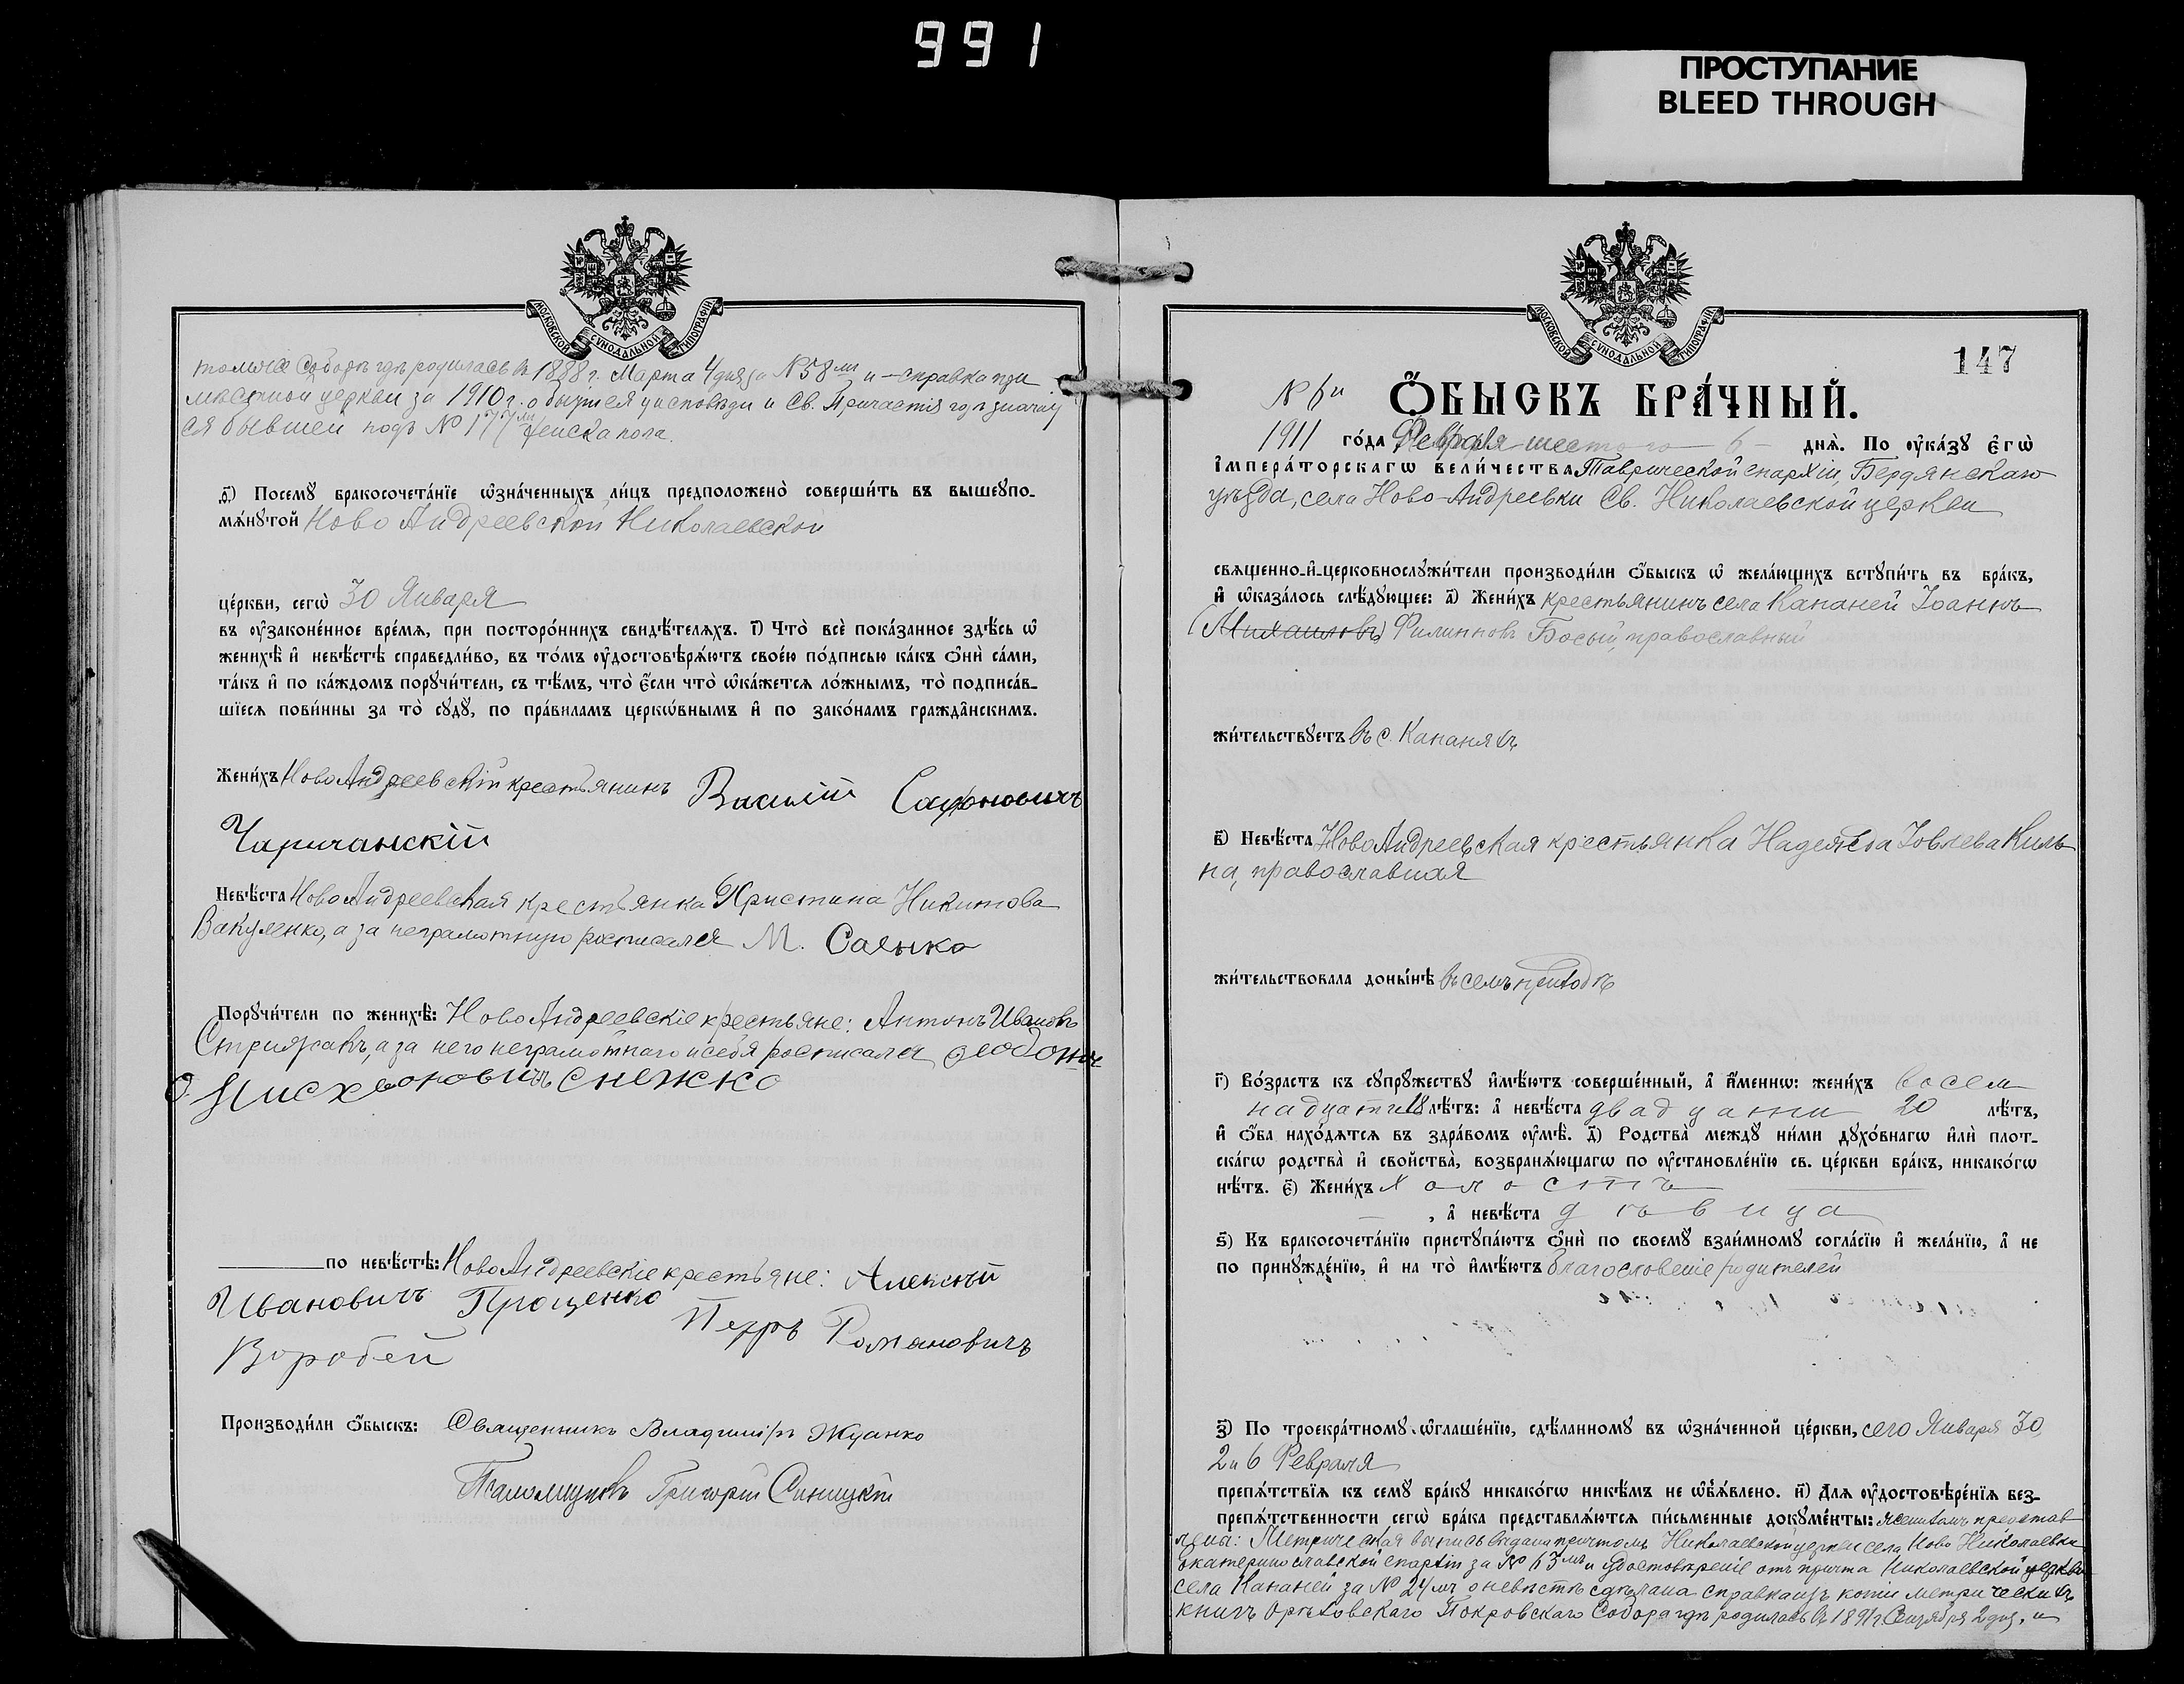 991
ПРОСТУПАНИЕ
BLEED THROUGH
МОСКОВСКОЙ СѴНОДАЛЬНОЙ ТИПОГРАФІИ
томъже Соборѣ гдѣ родилась въ 1888 г. Марта 4 дня за №58мъ и – справка при
мѣстной церкви за 1910 г. о бытіи у исповѣди и Св. Причастія гдѣ значит
ся бывшей подъ №177мъ женска пола.
ѳ҃) Посемꙋ бракосочета́нїе ѡ҆зна́ченныхъ ли́цъ предположено̀ соверши́ть въ вышеꙋпо-
мѧ́нꙋтой Ново Андреевской Николаевской
це́ркви, сегѡ̀ 30 Января
въ ᲂу҆законе́нное вре́мѧ, при посторо́ннихъ свидѣ́телѧхъ. і҃) Что̀ всѐ пока́занное здѣ́сь ѡ҆
женихѣ̀ и҆ невѣ́стѣ справедли́во, въ то́мъ ᲂу҆достовѣрѧ́ютъ свое́ю по́дписью ка́къ ѻ҆нѝ са́ми,
та́къ и҆ по ка́ждомъ порꙋчи́тели, съ тѣ́мъ, что̀ є҆́сли что̀ ѡ҆ка́жетсѧ ло́жнымъ, то̀ подписа́в-
шїесѧ пови́нны за то̀ сꙋдꙋ̀, по пра́виламъ церкѡ́внымъ и҆ по зако́намъ гражда̑нскимъ.
Жени́хъ Ново Андреевскій крестьянинъ Василій Сафоновичъ
Чаричанскій
Невѣ́ста Ново Андреевская крестьянка Христина Никитова
Вакуленко, а за неграмотную росписался М. Саенко
Порꙋчи́тели по женихѣ̀: Ново Андреевскіе крестьяне: Антонъ Ивановъ
Стрижакъ, а за него неграмотнаго и себя росписался
Снежко
по невѣ́стѣ: Ново Андреевскіе крестьяне: Алексѣй
Ивановичъ Прощенко Петръ Романовичъ
Воробей
Производи́ли ѻ҆́быскъ: Священникъ Владиміръ
Псаломщикъ Григорій Синицкій
147
МОСКОВСКОЙ СѴНОДАЛЬНОЙ ТИПОГРАФІИ
№ 6й
Ѻ҆́БЫСКЪ БРА́ЧНЫЙ.
1911 го́да Февраля шестого 6 днѧ̀. По ᲂу҆ка́зꙋ є҆гѡ̀
і҆мпера́торскагѡ вели́чества Таврической епархіи, Бердянскаго
уѣзда, села Ново-Андреевки Св. Николаевской церкви
свѧщенно-и҆-церковнослꙋжи́тели производи́ли ѻ҆́быскъ ѡ҆ жела́ющихъ встꙋпи́ть въ бра́къ,
и҆ ѡ҆каза́лось слѣ́дꙋющее: а҃) Жени́хъ крестьянинъ села Кананей Іоаннъ
(Михаиловъ) Филипповъ Босый, православный
жи́тельствꙋетъ въ с. Кананяхъ
в҃) Невѣ́ста Ново Андреевская крестьянка Надежда Іовлева Киль
на, православная
жи́тельствовала доны́нѣ въ семъ приходѣ
г҃) Во́зрастъ къ сꙋпрꙋ́жествꙋ и҆мѣ́ютъ соверше́нный, а҆ и҆́меннѡ: жени́хъ восем
надцати 18 лѣ́тъ: а҆ невѣ́ста двадцати 20 лѣ́тъ,
и҆ ѻ҆́ба нахо́дѧтсѧ въ здра́вомъ ᲂу҆мѣ̀. д҃) Родства̀ междꙋ̀ ни́ми дꙋхо́внагѡ и҆лѝ плот-
ска́гѡ родства̀ и҆ сво́йства̀, возбранѧ́ющагѡ по ᲂу҆становле́нїю св. це́ркви бра́къ, никако́гѡ
нѣ́тъ. є҃) Жени́хъ холостъ
, а҆ невѣ́ста дѣвица
ѕ҃) Къ бракосочета́нїю пристꙋпа́ютъ ѻ҆нѝ по своемꙋ̀ взаи́мномꙋ согла́сїю и҆ жела́нїю, а҆ не
по принꙋжде́нїю, и҆ на то̀ и҆мѣ́ютъ благословеніе родителей
з҃) По троекра́тномꙋ ѡ҆глаше́нїю, сдѣ́ланномꙋ въ ѡ҆зна́ченной це́ркви, сего Января 30,
2 и 6 Февраля
препѧ́тствїѧ къ семꙋ̀ бра́кꙋ никако́гѡ никѣ́мъ не ѡ҆б̾ѧ́влено. и҃) Для ᲂу҆достовѣре́нїѧ без-
препѧ́тственности сегѡ̀ бра́ка представлѧ́ютсѧ пи́сьменные докꙋме́нты: женихомъ представ
лены: Метрическая выпись выдана причтомъ Николаевской церкви села Ново Николаевки
Екатеринославской епархіи за № 63мъ и удостовѣреніе отъ причта Николаевской церкви
села Кананей за №24мъ о невѣстѣ сдѣлана справка изъ копіи метрическихъ
книгъ Орѣховскаго Покровскаго Собора гдѣ родилась въ 1891 г. Сентября 2 дня, и